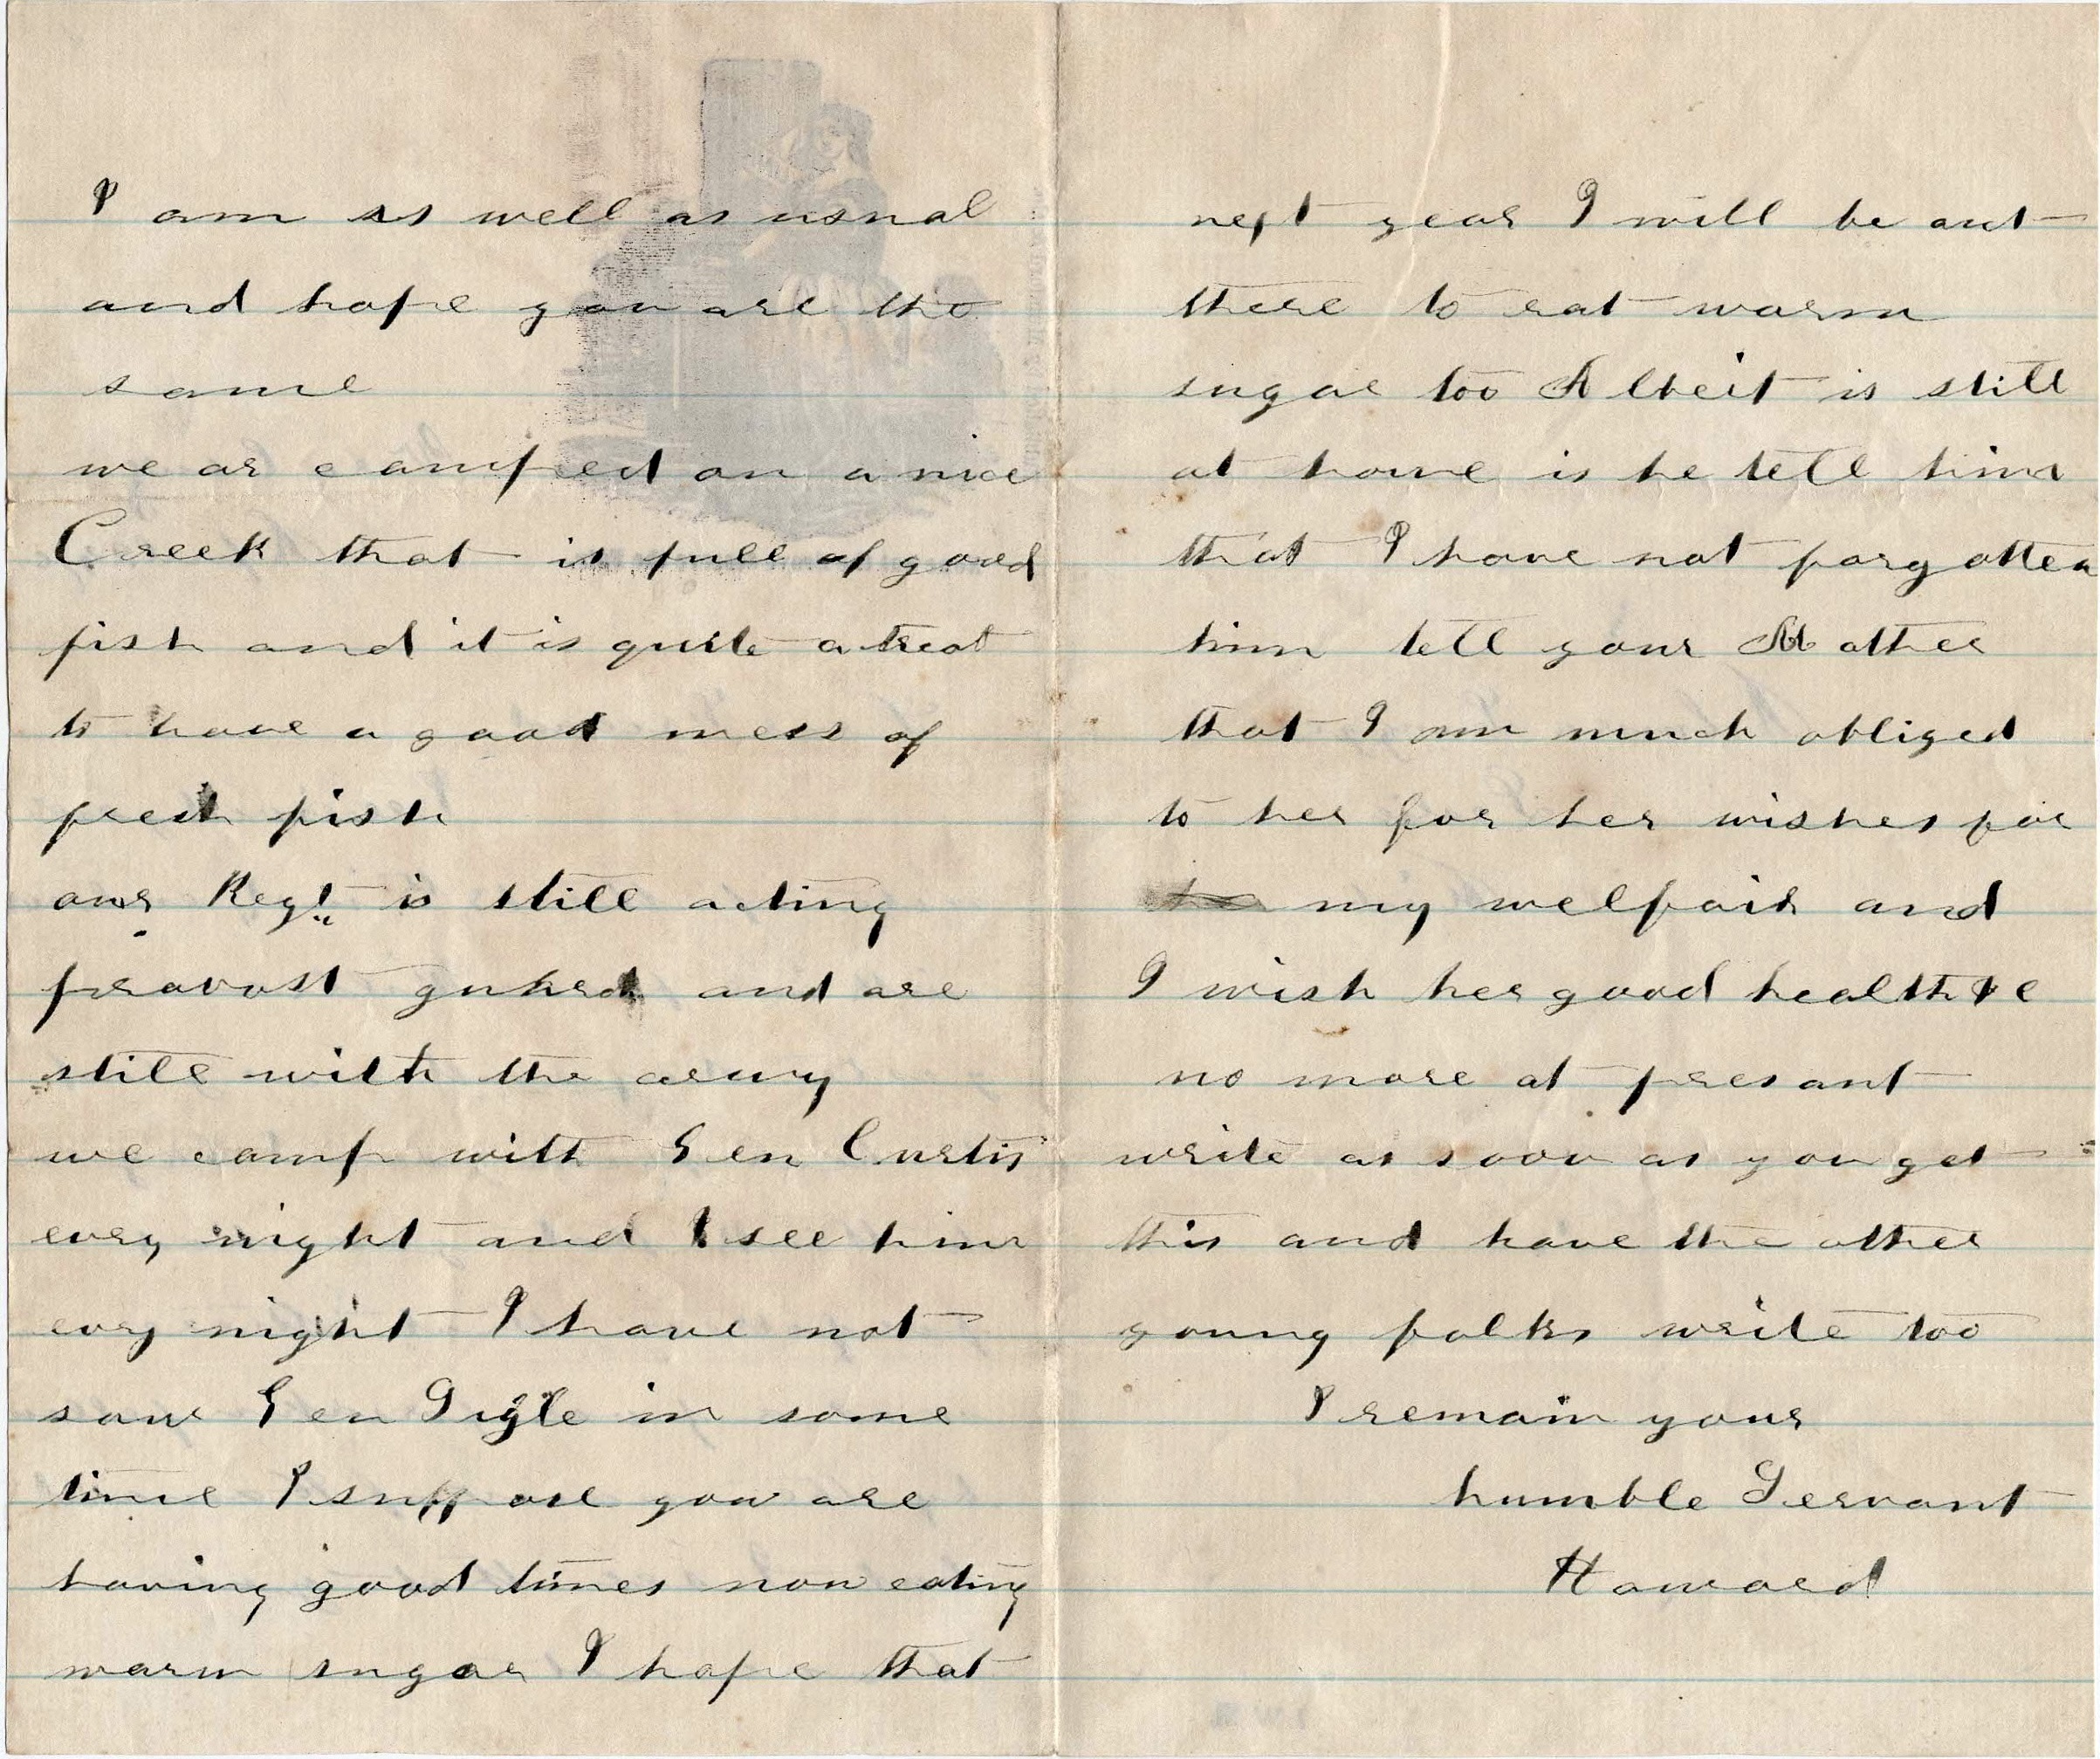 I am as well as usual
and hope you are the
same
we ar camped on a nice
Creek that is full of good
fish and it is quite a treat
to have a good mess of
fresh fish
our Regt is still acting
pravost guard and are
still with the army
we camp with Gen Curtis
evry night and I see him
evry night I have not
saw Gen Sigle in some
time I suppose you are
having good times now eating
warm sugar I hope that
next year I will be out
there to eat warm
sugar too Albert is still
at home is he tell him
that I have not forgotten
him tell your Mother
that I am much obliged
to her for her wishes for
my welfair and
I wish her good health &c
no more at presant
write as soon as you get
this and have the other
young folks write too
I remain your
humble Servant
Howard